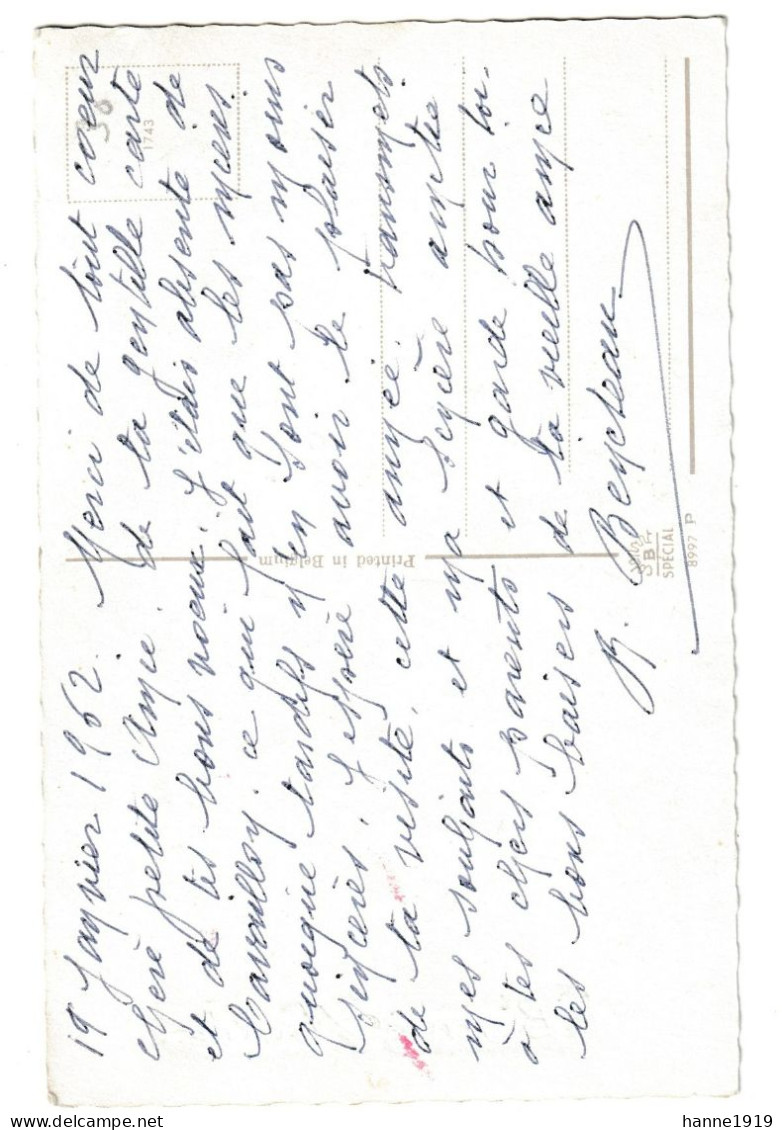 19 Janvier 1962. Merci de tout coeur
Chère petite Amie. de ta gentille carte
et de tes bons voeux. J'étais absente de
Cavaillon, ce qui fait que les miens
quoique tardifs n'en sont pas moins
sincères. J'espère avoir le plaisir
de ta visite, cette année. transmets
mes souhaits et ma sincère amitié
à tes chers parents et garde pour toi
les bons baisers de ta vieille amie
R.
38
1743
Printed in Belgium
SPECIAL
8997 P
hanne1919